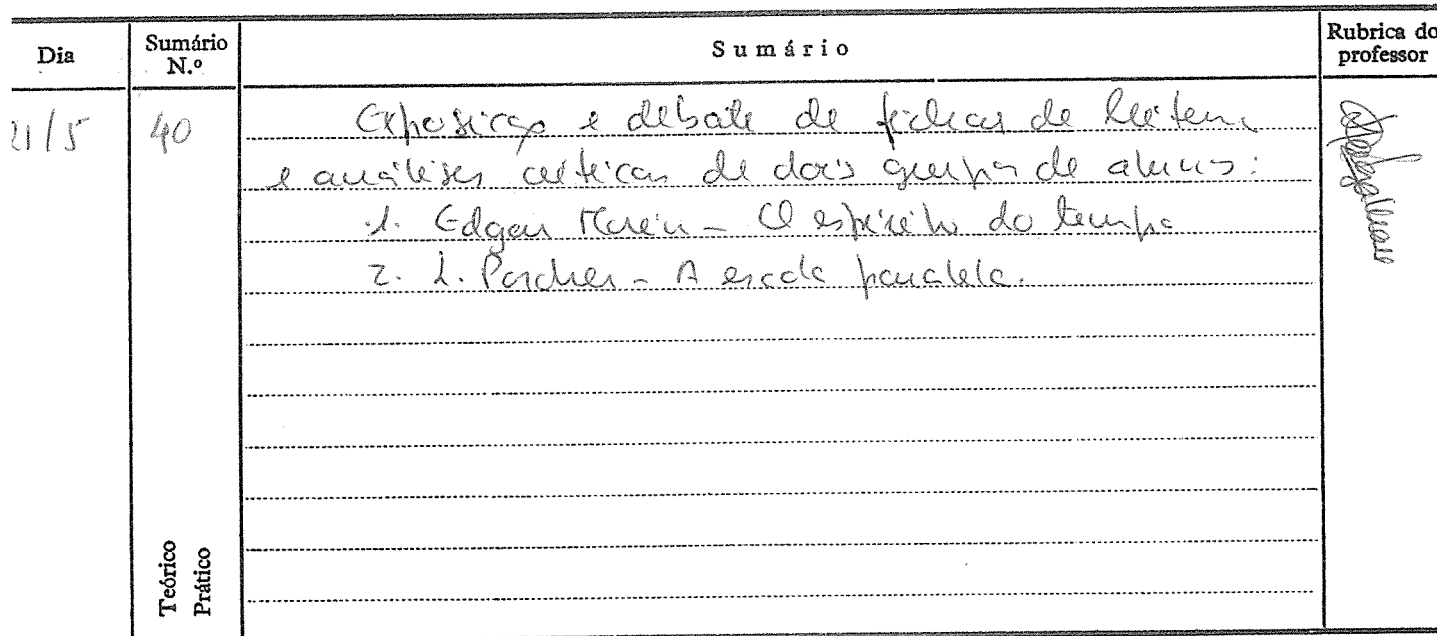 Dia
Sumário N.º
Sumário
Rubrica do professor
21/5
40
Exposição e debate de fichas de leitura
e análises críticas de dois grupos de alunos:
1. Edgar Morin – O espírito do tempo
2. L. Porcher – A escola paralela.
Teórico
Prático